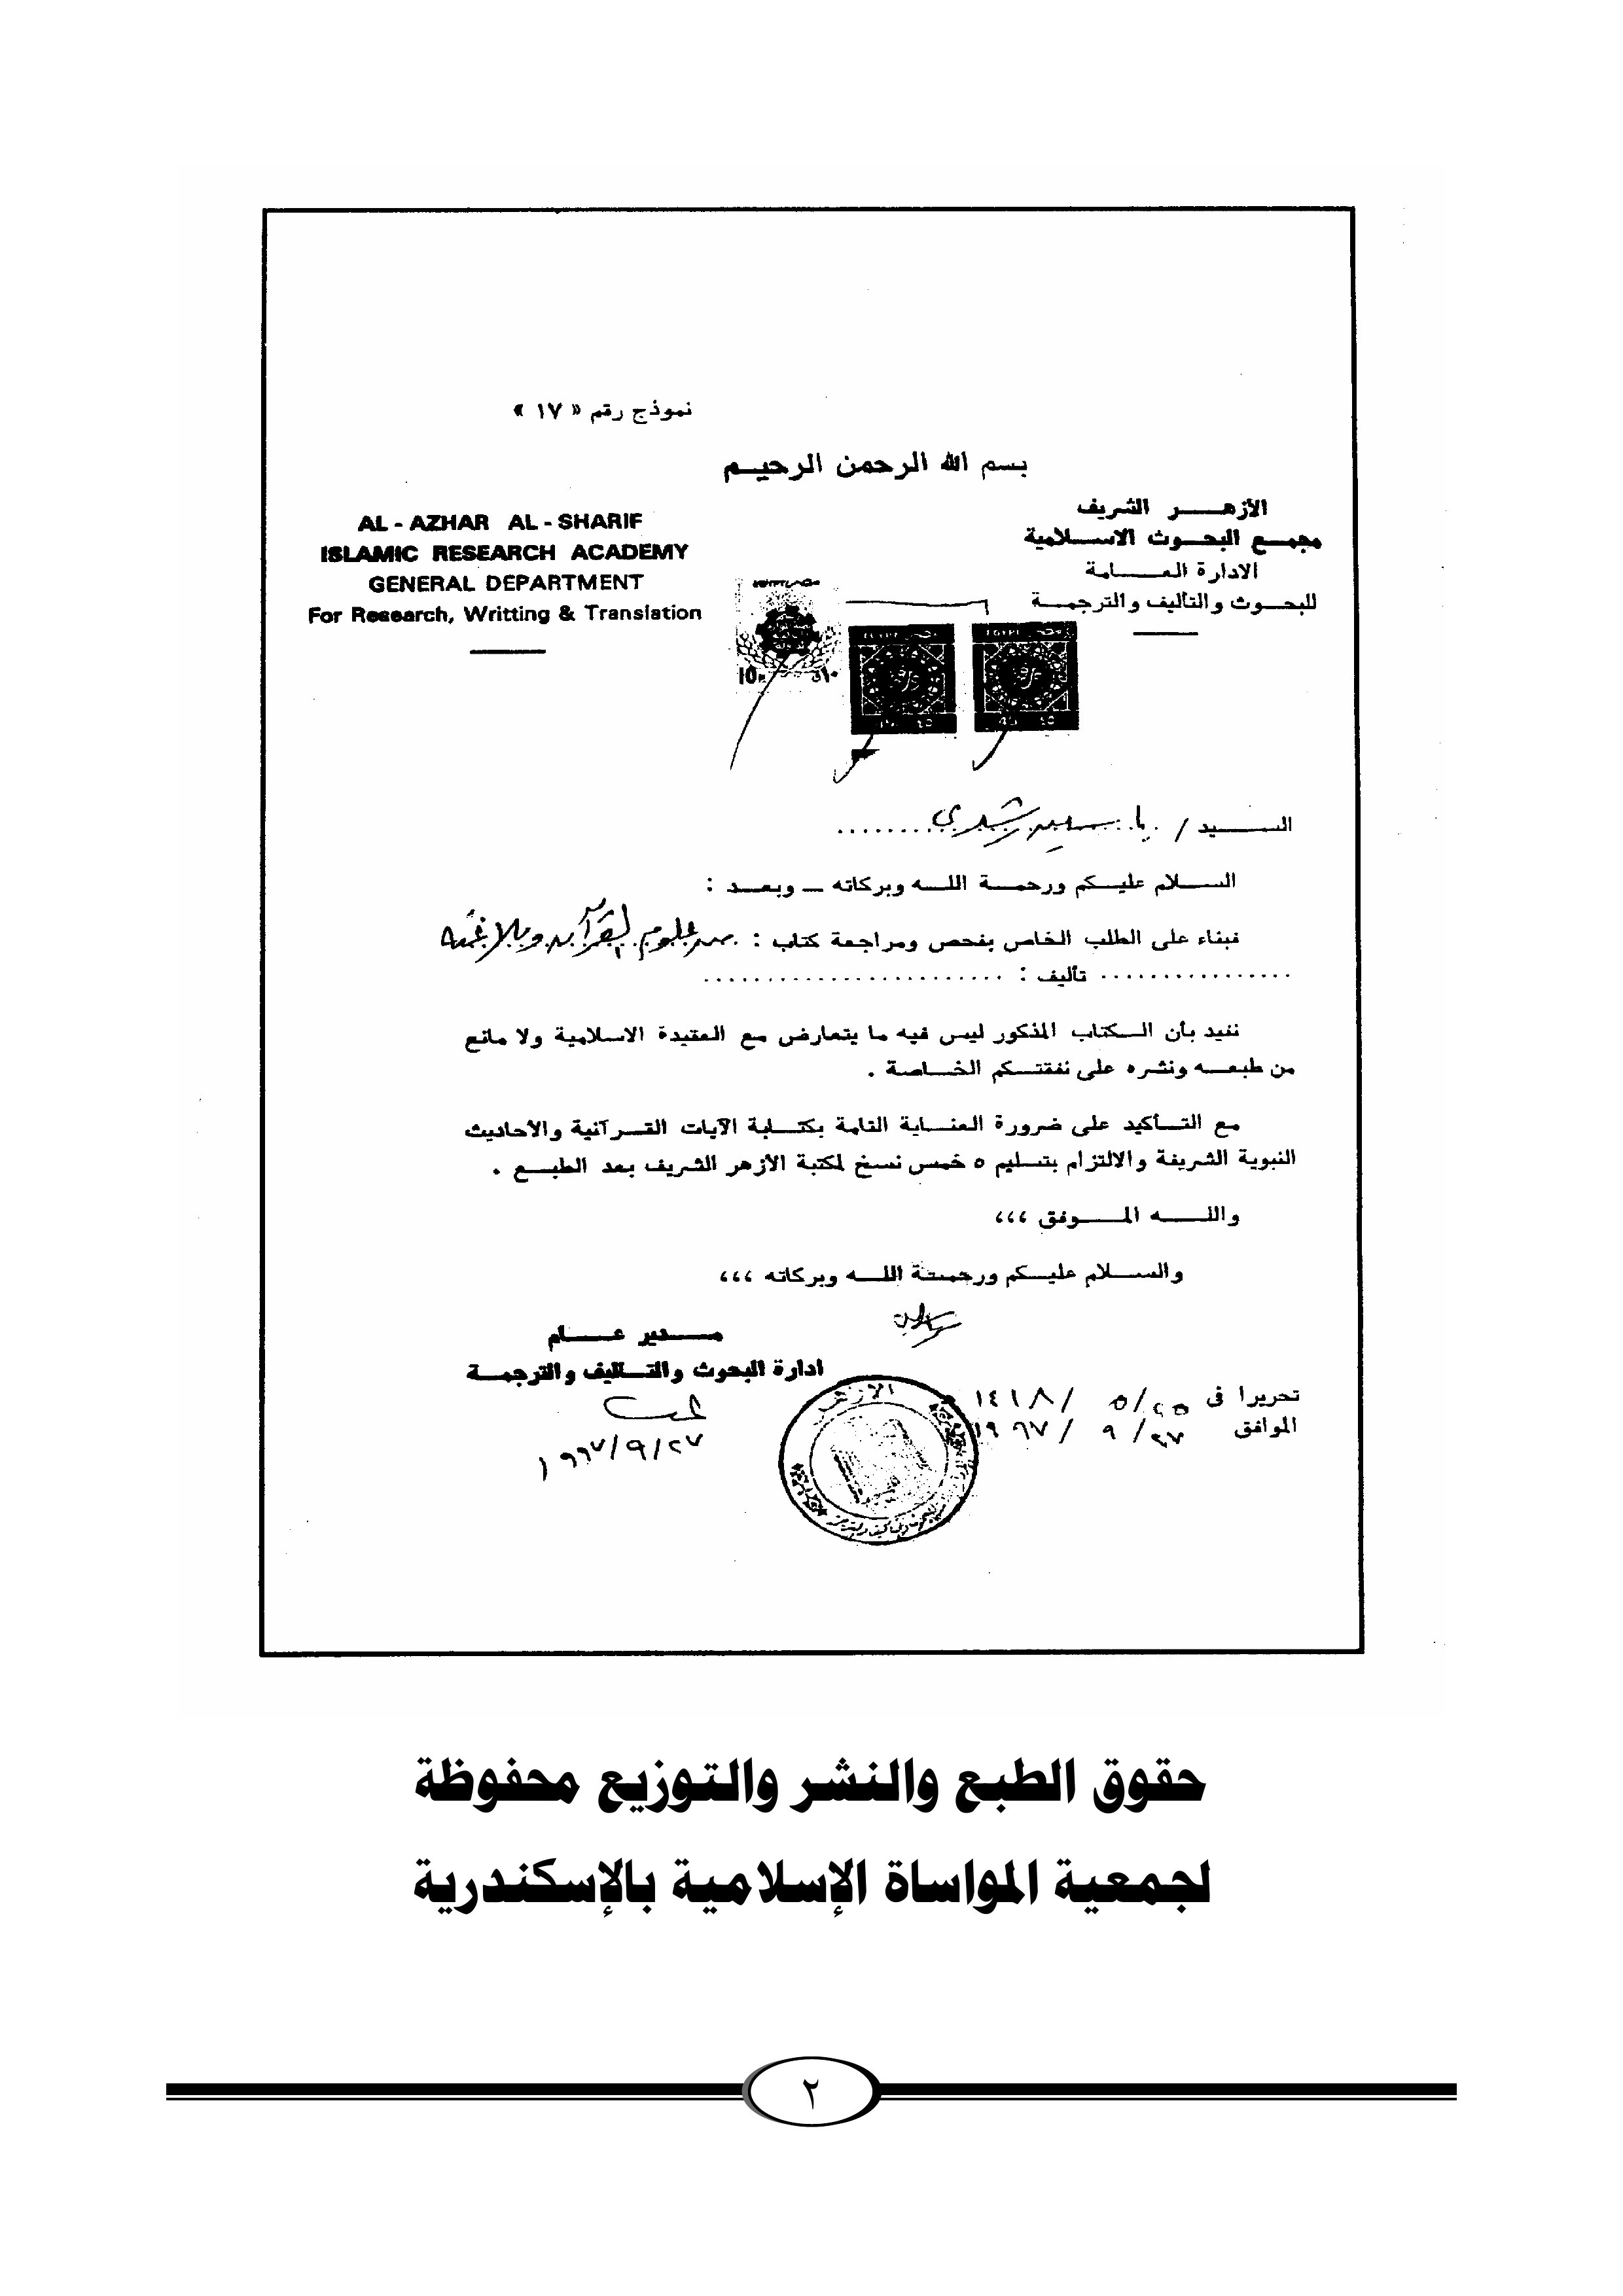 نموذج رقم « ١٧ »
بسم الله الرحمن الرحيم
الأزهر الشريف
مجمع البحوث الاسلامية
الادارة العامة
للبحوث والتأليف والترجمة
AL - AZHAR AL - SHARIF
ISLAMIC RESEARCH ACADEMY
GENERAL DEPARTMENT
For Research, Writting & Translation
السيد / ياسين رشدي
السلام عليكم ورحمة الله وبركاته — وبعد :
فبناء على الطلب الخاص بفحص ومراجعة كتاب : من علوم القرآن وبلاغته
تأليف :
نفيد بأن الكتاب المذكور ليس فيه ما يتعارض مع العقيدة الاسلامية ولا مانع
من طبعه ونشره على نفقتكم الخاصة .
مع التأكيد على ضرورة العناية التامة بكتابة الآيات القرآنية والأحاديث
النبوية الشريفة والالتزام بتسليم ٥ خمس نسخ لمكتبة الأزهر الشريف بعد الطبع .
والله الموفق ،،،
والسلام عليكم ورحمة الله وبركاته ،،،
مدير عام
ادارة البحوث والتأليف والترجمة
تحريرا فى ٢٥ / ٥ / ١٤١٨
الموافق ٢٧ / ٩ / ١٩٩٧
١٩٩٧/٩/٢٧
حقوق الطبع والنشر والتوزيع محفوظة
لجمعية المواساة الإسلامية بالإسكندرية
٢